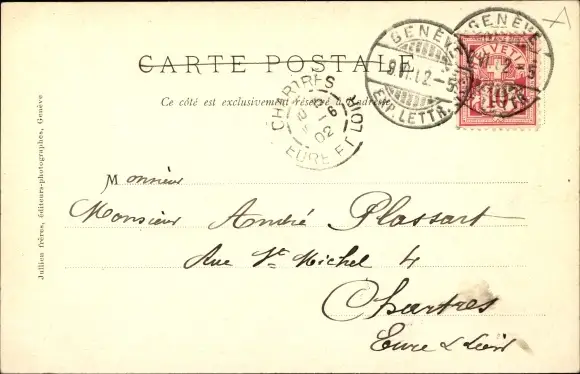 CARTE POSTALE
Ce côté est exclusivement réservé à l'adresse.
GENÈVE
EXP. LETTR.
GENÈVE
HELVETIA
10
CHARTRES
02
EURE ET LOIR
Monsieur
Monsieur André Plassart
Rue St Michel 4
Chartres
Eure & Loir
Jullien frères, éditeurs-photographes, Genève